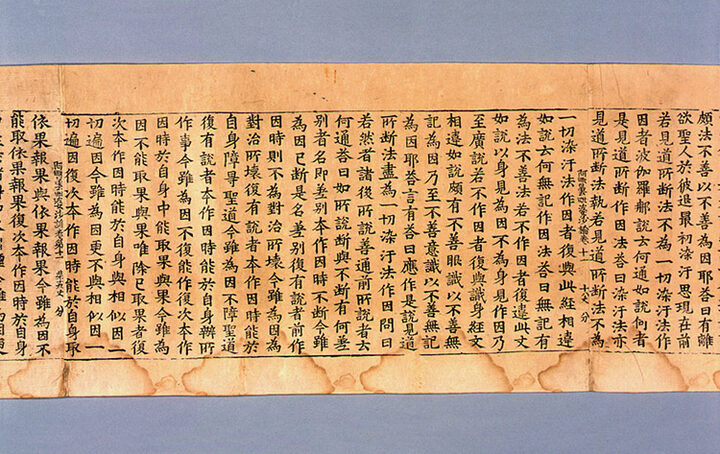 頗法不善以不善為因耶答曰有離
欲聖人於彼退最初染汙思現在前
若見道所斷法不為一切染汙法作
因者波伽羅那說云何通如說何者
是見道所斷作因法答曰染汙法亦
見道所斷法執若見道所斷法不為
阿毗曇毗婆沙論卷十一 十六丈 分
一切染汙法作因者復與此經相違
如說云何無記作因法答曰無記有
為法不善法若不作因者復違此文
如說以身見為因不為身見作因乃
至廣說若不作因者復與識身經文
相違如說頗有不善眼識以不善無
記為因乃至不善意識以不善無記
為因耶答言有答曰應作是說見道
所斷法盡為一切染汙法作因問曰
若然者諸後所說善通前所說者云
何通答曰如所說斷與不斷有何差
別者名即差別本作因時不斷今雖
為因已斷是名差別復有說者前作
因時則不為對治所壞今雖為因為
對治所壞復有說者本作因時能於
自身障㝵聖道今雖為因不障聖道
復有說者本作因時能於自身辦所
作事今雖為因不復能作復次本作
因時於自身中能取果與果今雖為
因不能取果與果唯除已取果者復
次本作因時能於自身與相似因一
切遍因今雖為因更不與相似因一
切遍因復次本作因時能於自身取
依果報果與依果報果今雖為因不
能取依果報果復次本作因時於自身